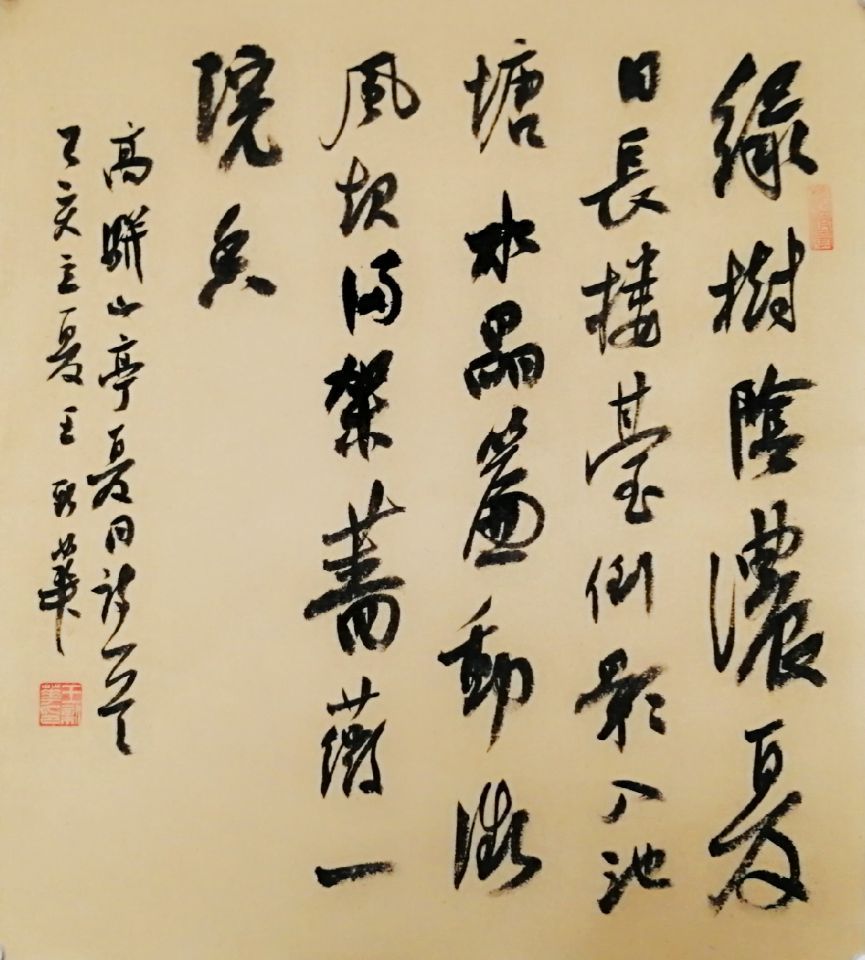 綠樹陰濃夏
日長樓臺倒影入池
塘水晶簾動微
風起滿架薔薇一
院香
高駢山亭夏日詩一首
己亥立夏王華